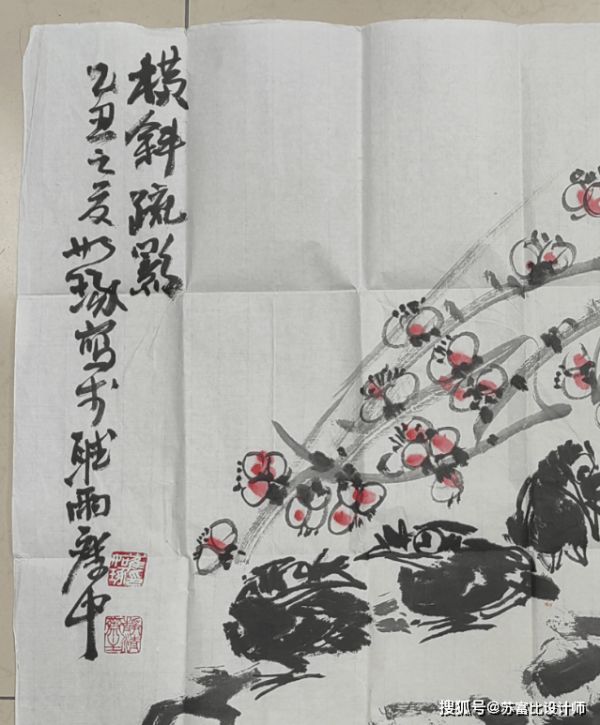 横斜疏影
乙丑之夏如琢写于听雨楼中
搜狐号@苏富比设计师